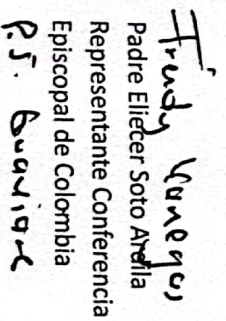 Fredy Vanegas
Padre Eliecer Soto Ardila
Representante Conferencia
Episcopal de Colombia
P.S. Guaviare